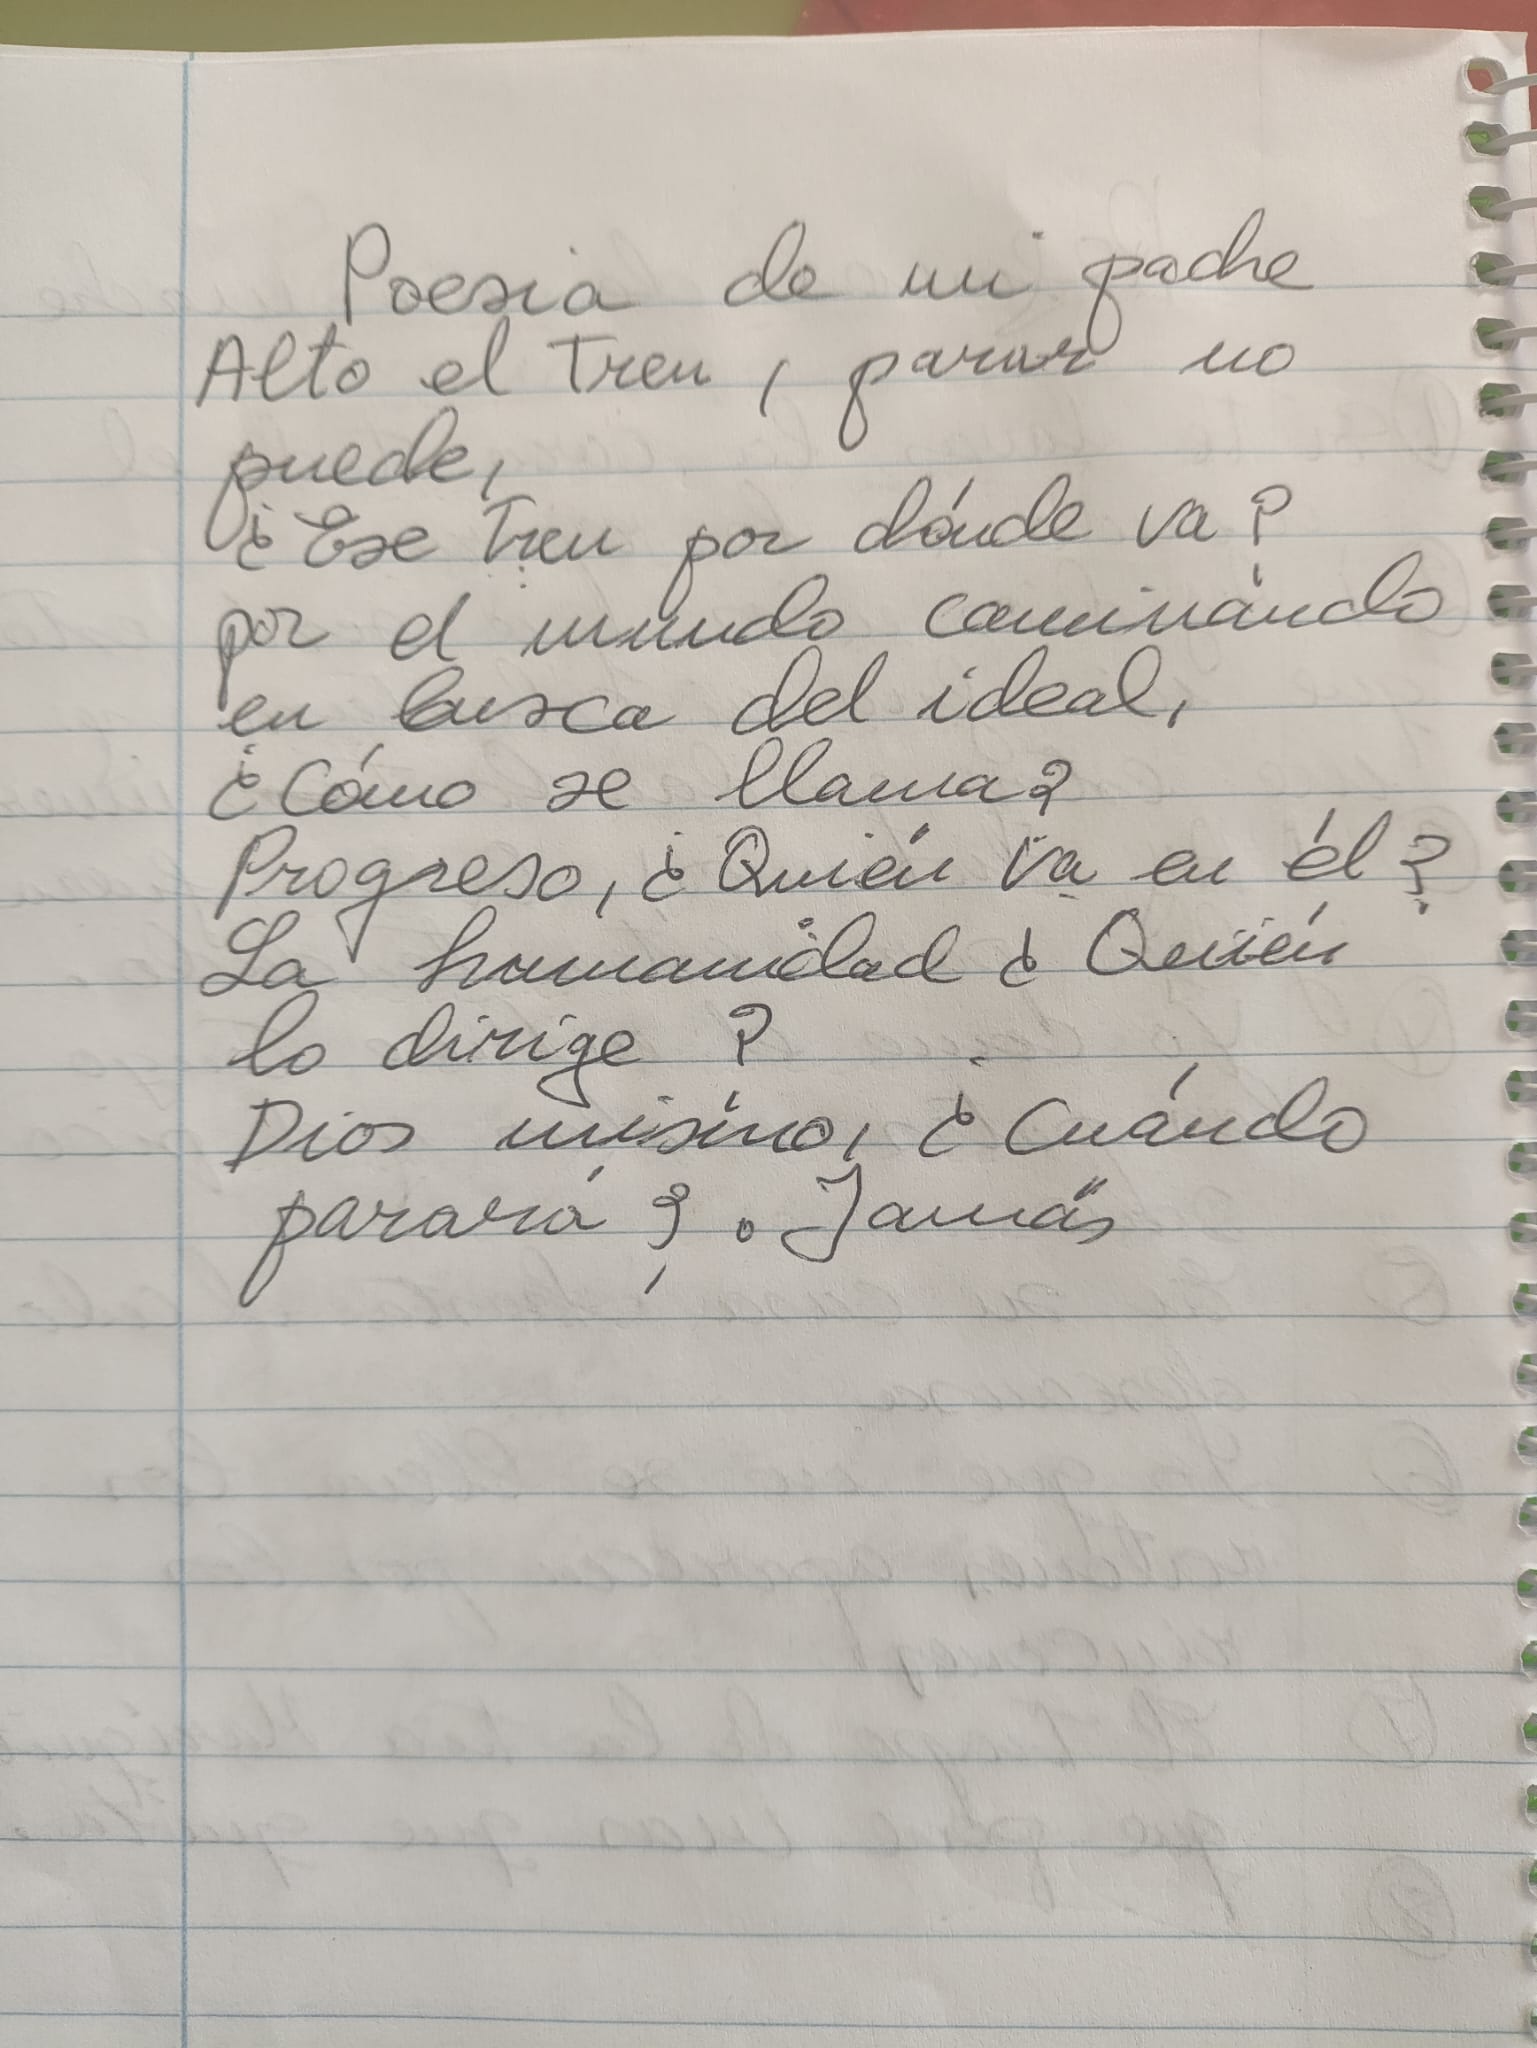 Poesia de mi padre
Alto el Tren, parar no
puede,
¿Ese Tren por dónde va?
por el mundo caminándo
en busca del ideal,
¿Cómo se llama?
Progreso, ¿Quién va en él?
La humanidad ¿Quién
lo dirige?
Dios mismo, ¿Cuándo
parará?. Jamás